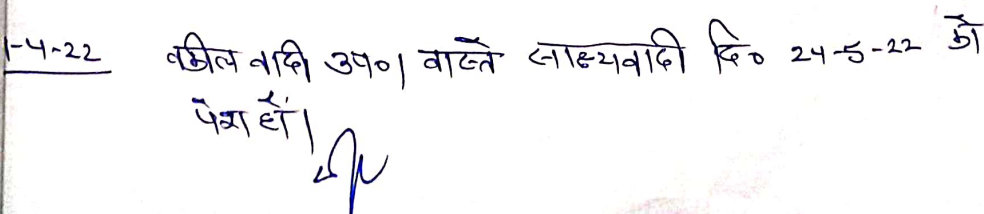 1-4-22 वकील वादी उप०। वास्ते साक्ष्यवादी दि० 24-5-22 को
पेश हों।